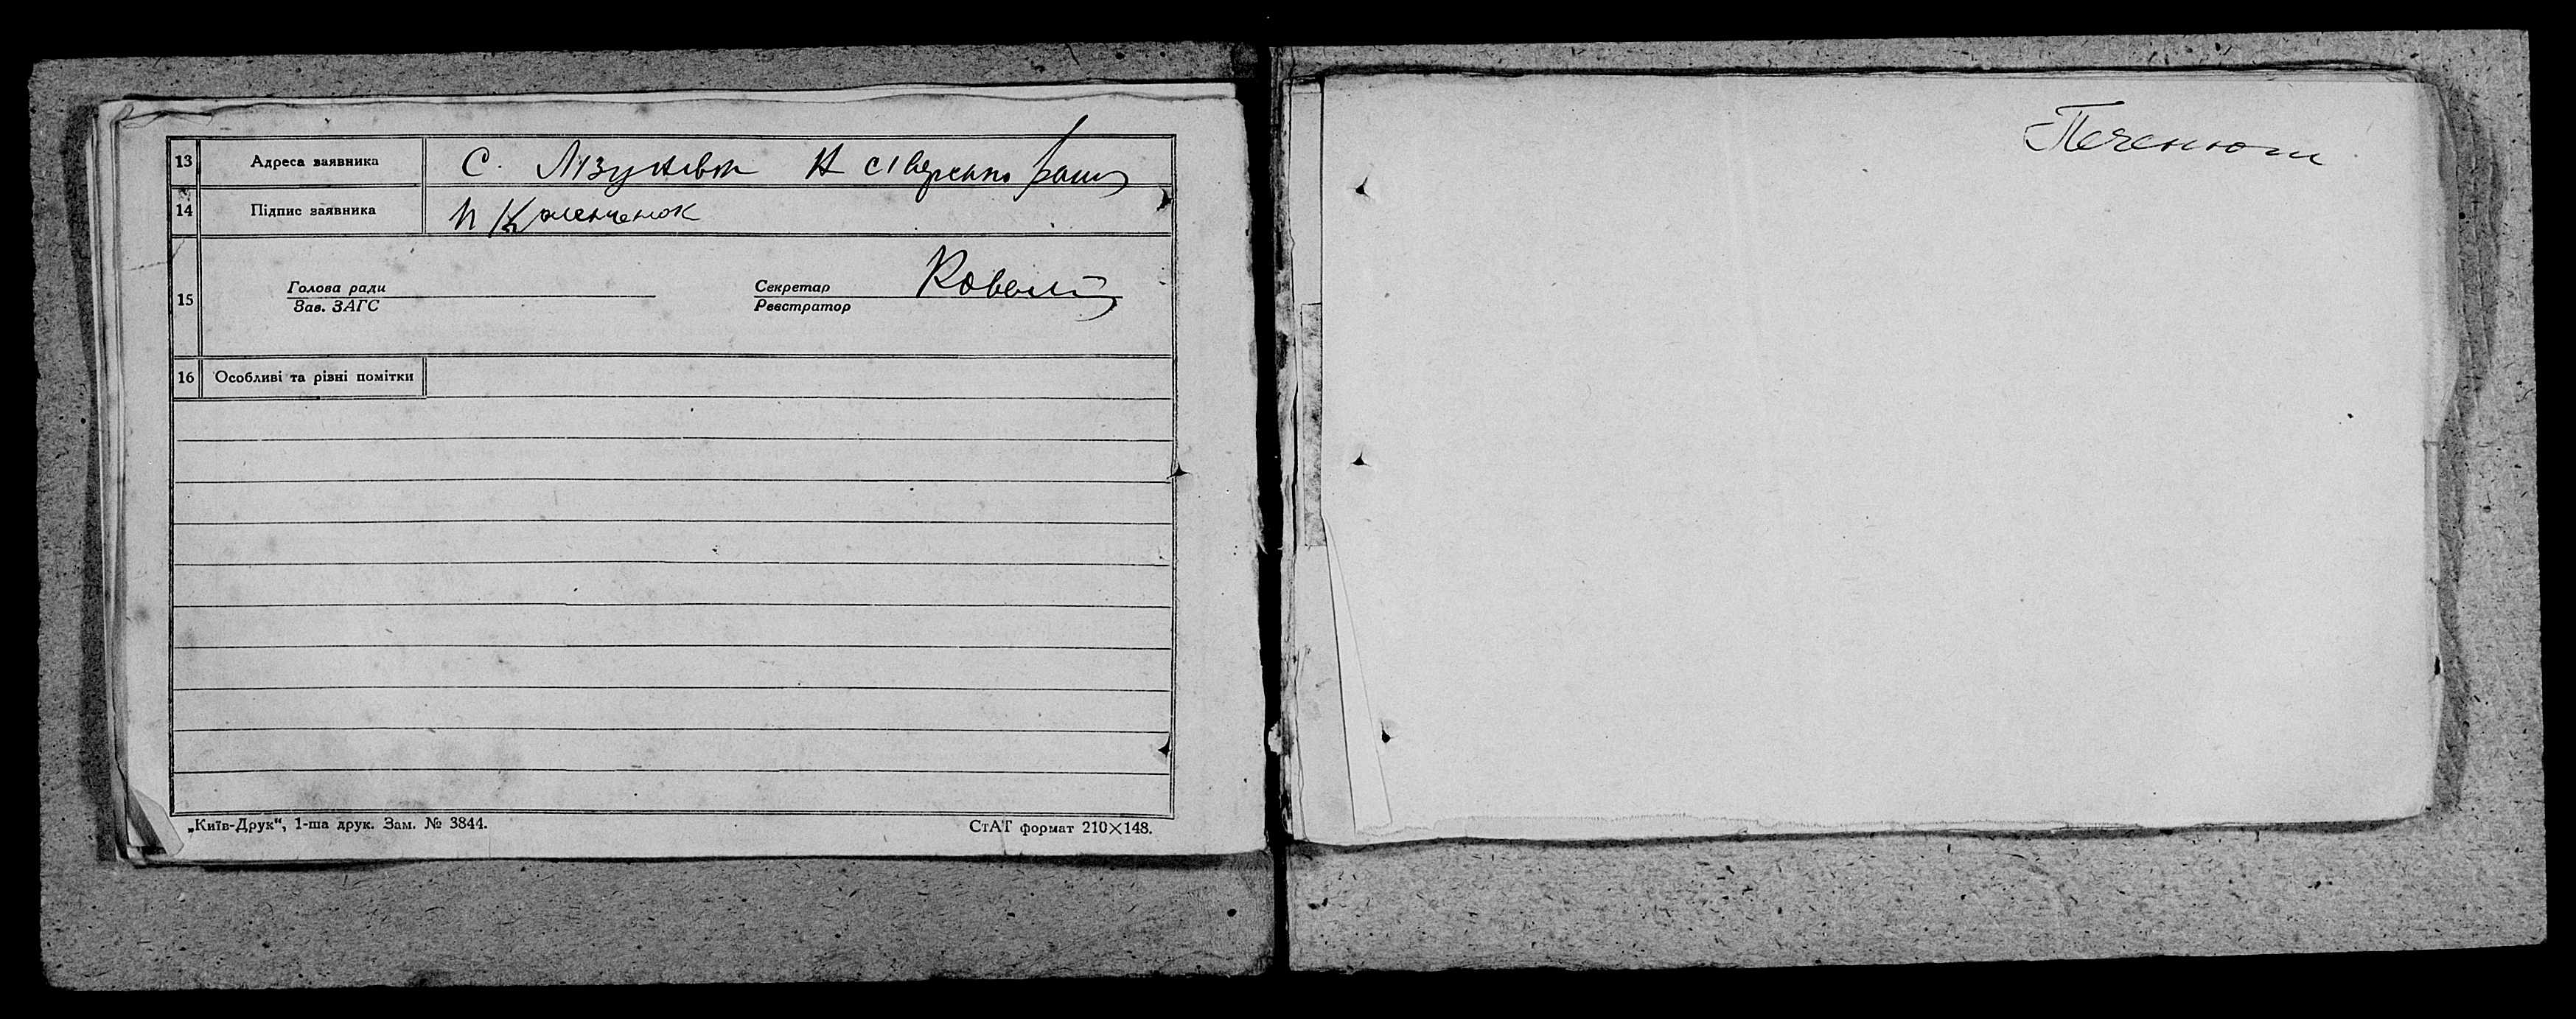 13 Адреса заявника С. Лізунівка Н сіверсько
14 Підпис заявника
15 Голова ради Секретар
Зав. ЗАГС Реєстратор
16 Особливі та різні помітки
„Київ-Друк“, 1-ша друк. Зам. № 3844. СтАТ формат 210×148.
Печенюги